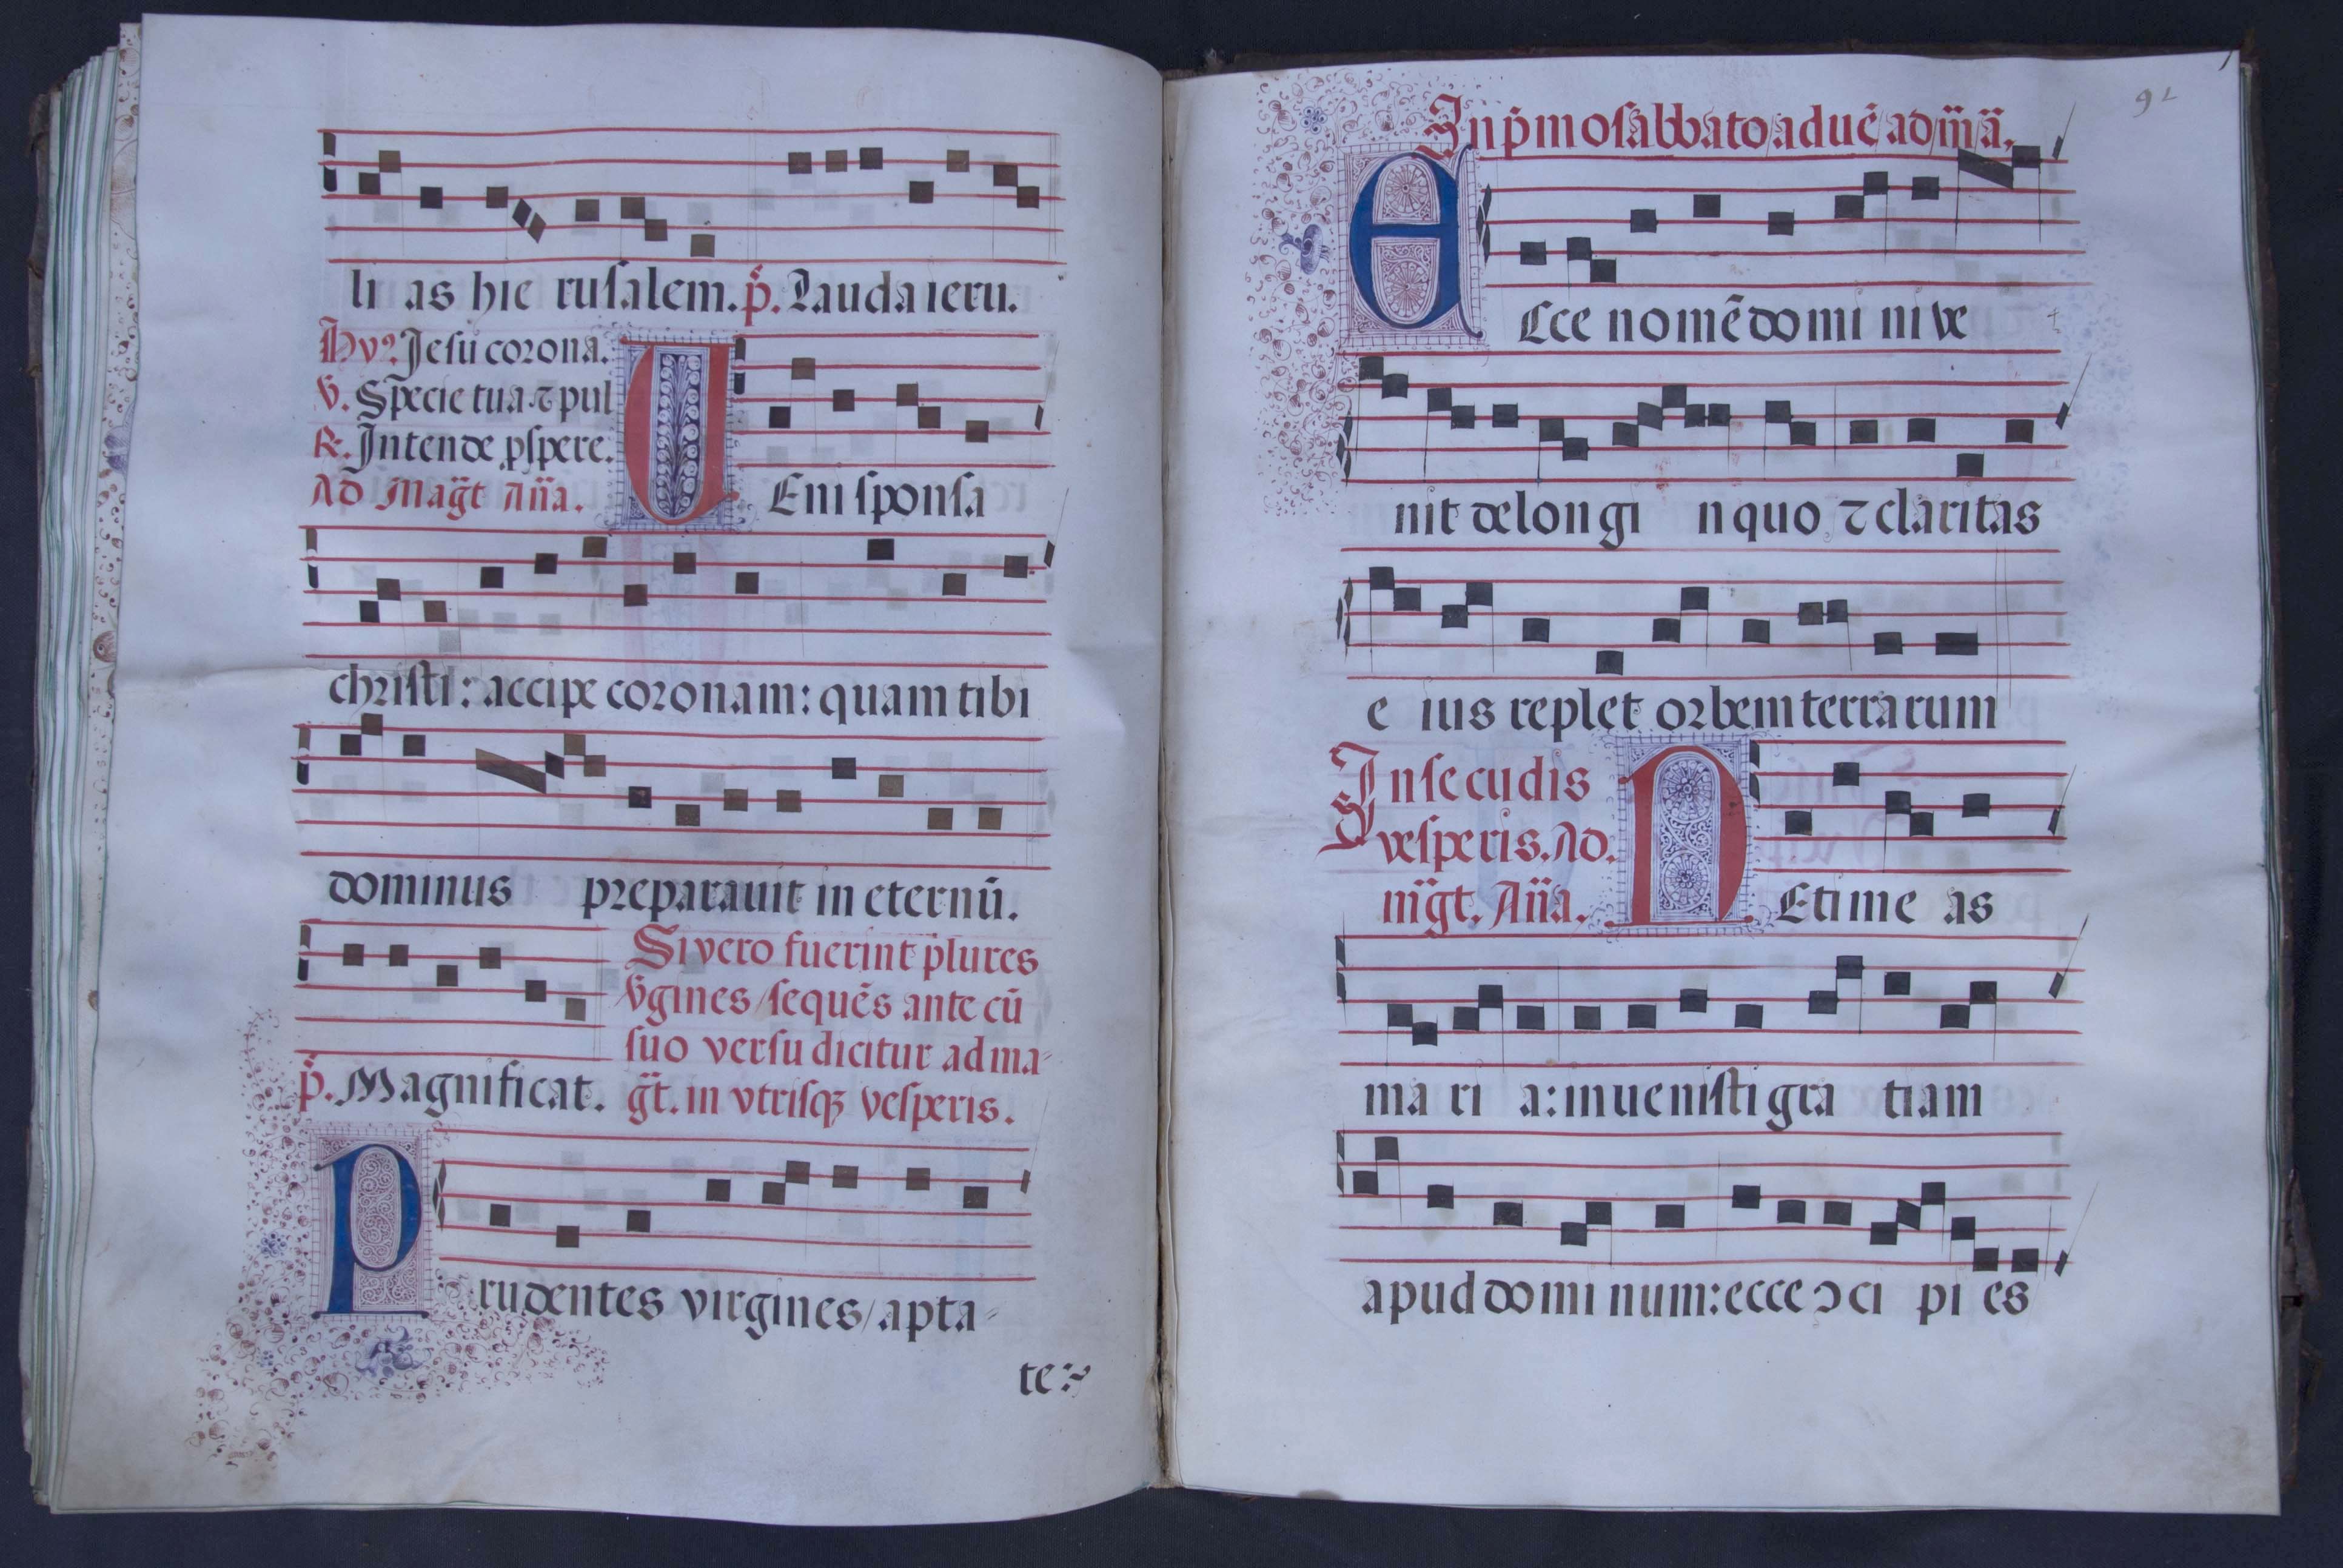 li as hie rusalem. p̄. Lauda ieru.
Hy². Jesū corona.
V. Sp̄ecie tua ⁊ pul
R. Intende ꝓspere.
Ad Mag̃t Añа.
U Eni sponsa
christi: accipe coronam: quam tibi
dominus preparauit in eternū.
p̄. Magnificat.
Si vero fuerint plures
v̄gines / sequēs ante cū
suo versu dicitur ad ma-
g̃t. in vtrisqꝫ vesperis.
P rudentes virgines / apta-
te:
92
In p̄mo sabbato aduē ad m̃ã.
E Cce nomē domi ni ve
nit de longi nquo ⁊ claritas
e ius replet orbem terrarum
In secūdis
vesperis. Ad.
m̃gt. Añа.
N E time as
ma ri a: inuenisti gra tiam
apud domi num: ecce ↄci pi es